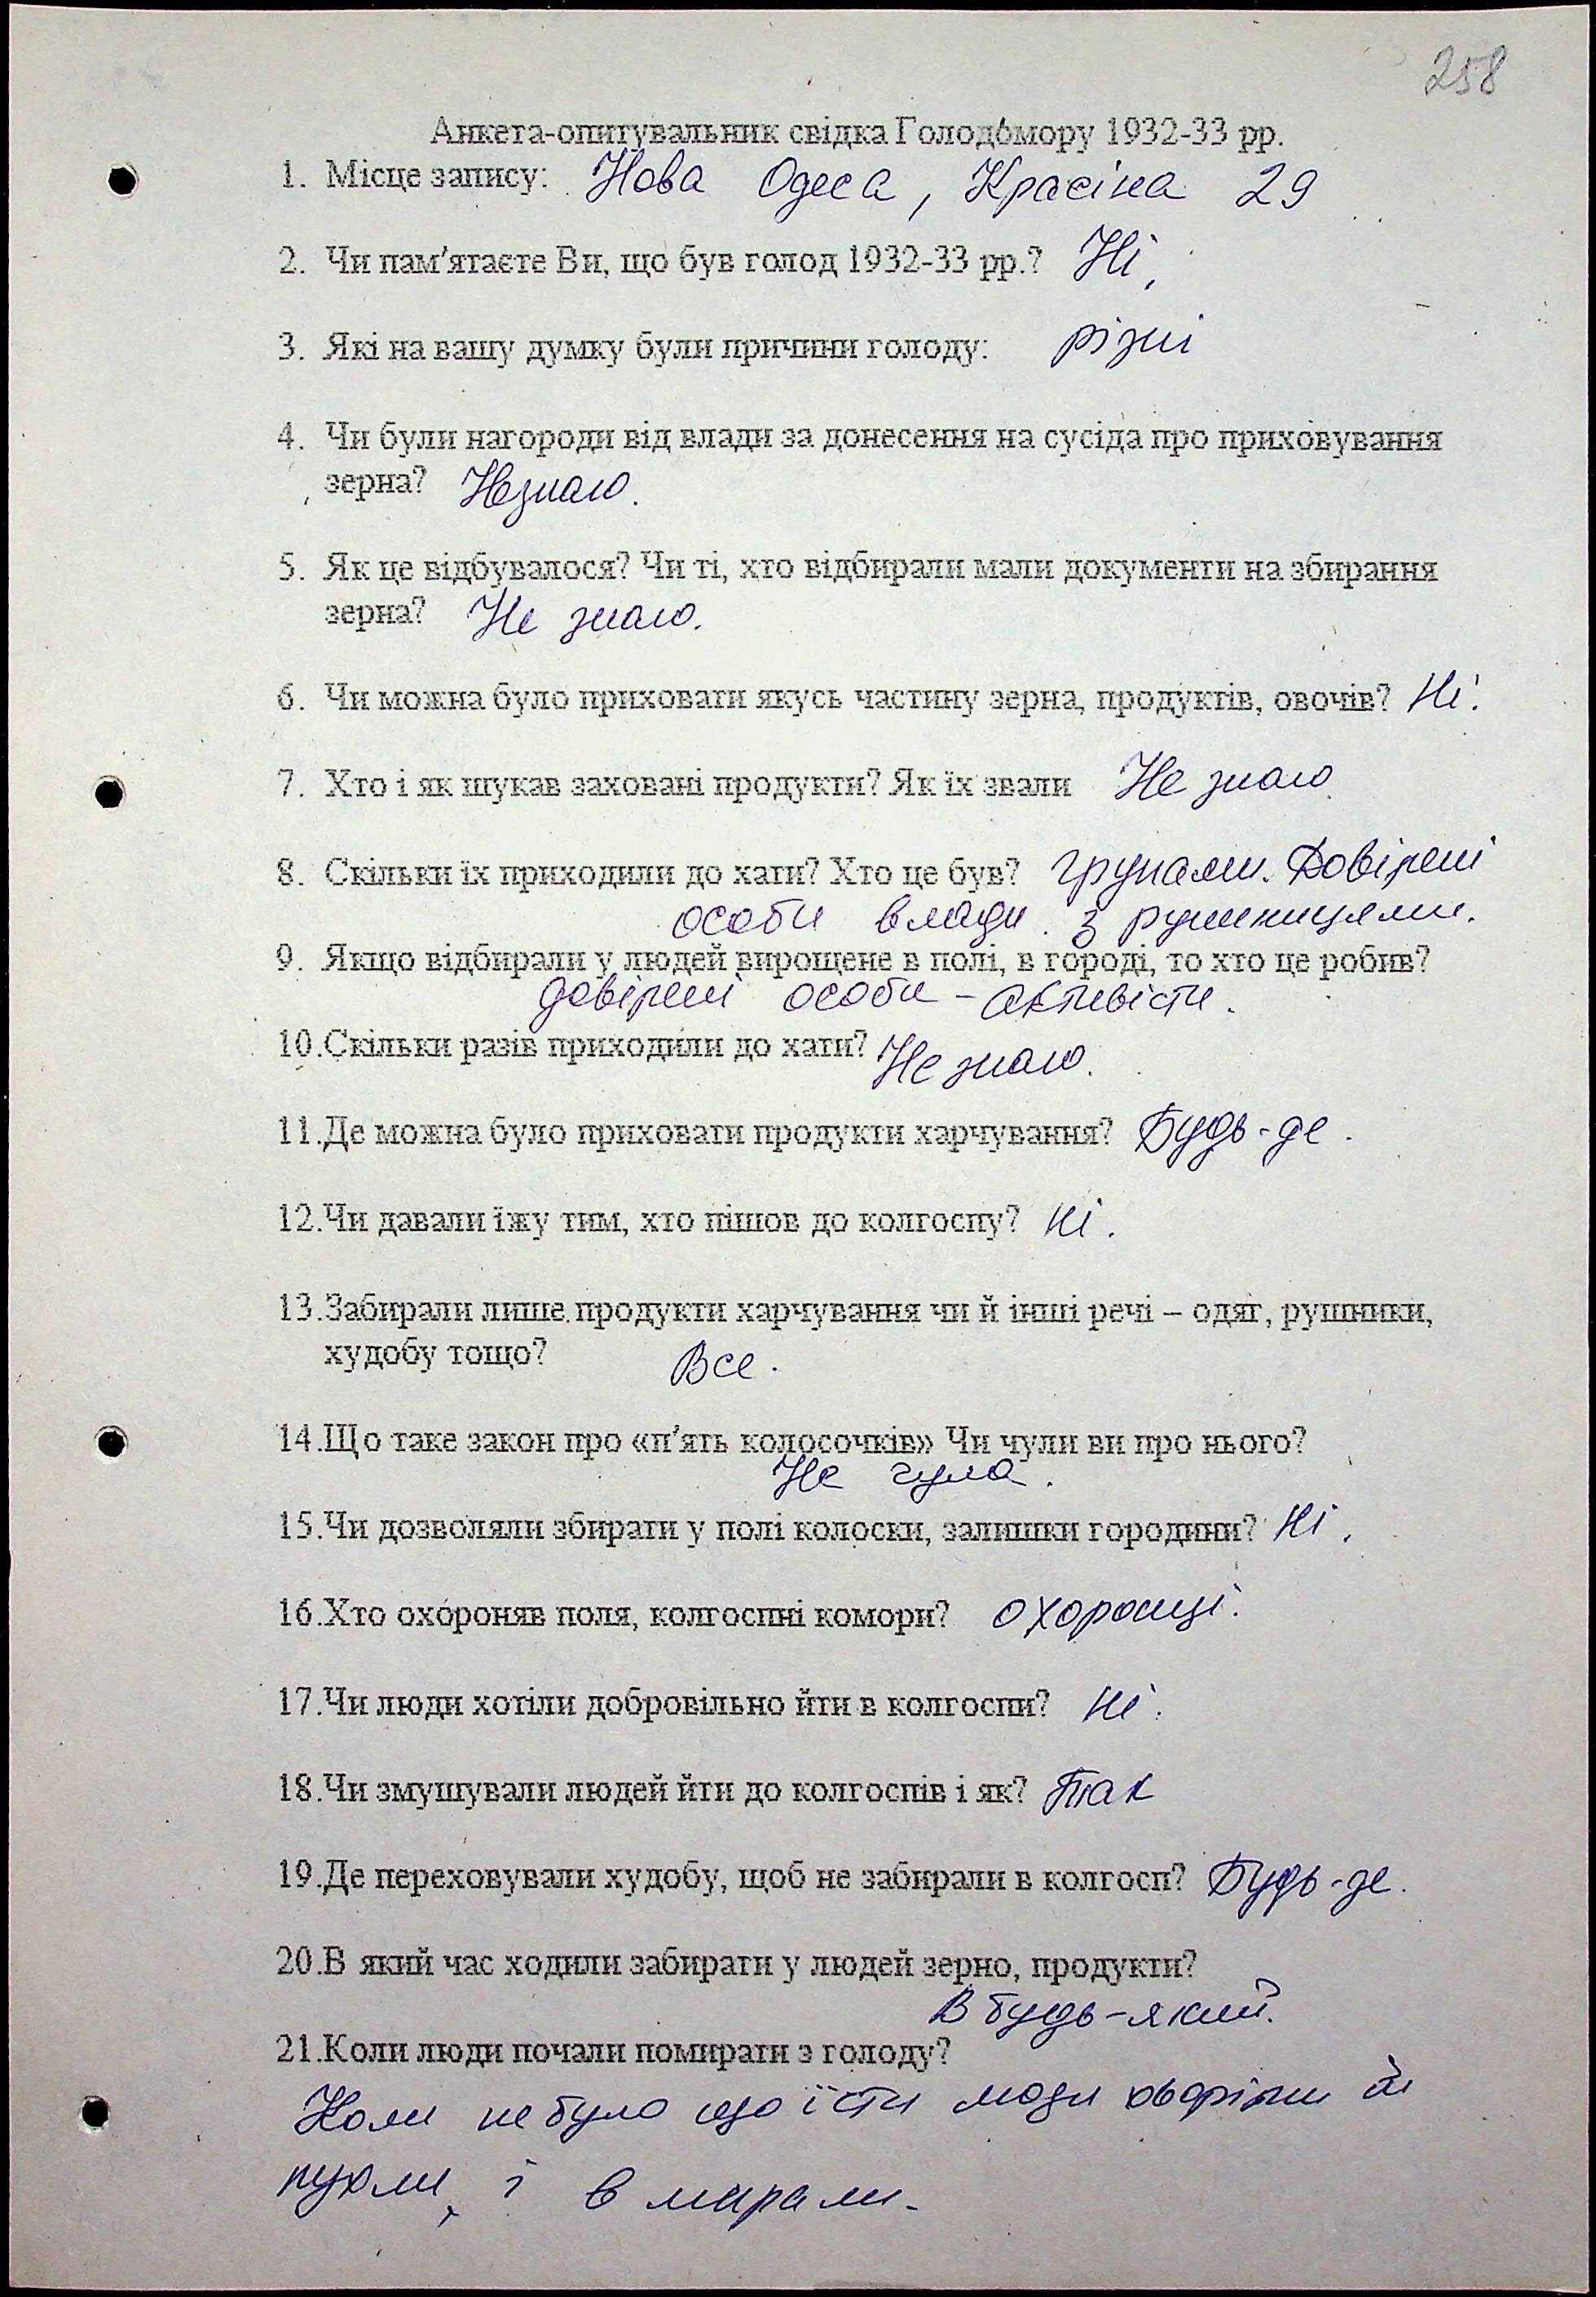 258
Анкета-опитувальник свідка Голодомору 1932-33 рр.
1. Місце запису: Нова Одеса, Красіна 29
2. Чи пам'ятаєте Ви, що був голод 1932-33 рр.? Ні,
3. Які на вашу думку були причини голоду: різні
4. Чи були нагороди від влади за донесення на сусіда про приховування
зерна? Незнаю.
5. Як це відбувалося? Чи ті, хто відбирали мали документи на збирання
зерна? Не знаю.
6. Чи можна було приховати якусь частину зерна, продуктів, овочів? Ні.
7. Хто і як шукав заховані продукти? Як їх звали Не знаю.
8. Скільки їх приходили до хати? Хто це був? групами. Довірені
особи влади. з рушницями.
9. Якщо відбирали у людей вирощене в полі, в городі, то хто це робив?
довірені особи - активісти.
10.Скільки разів приходили до хати? Не знаю.
11.Де можна було приховати продукти харчування? Будь-де.
12.Чи давали їжу тим, хто пішов до колгоспу? Ні.
13.Забирали лише продукти харчування чи й інші речі – одяг, рушники,
худобу тощо? Все.
14.Що таке закон про «п'ять колосочків» Чи чули ви про нього?
Не чула.
15.Чи дозволяли збирати у полі колоски, залишки городини? Ні.
16.Хто охороняв поля, колгоспні комори? охоронці.
17.Чи люди хотіли добровільно йти в колгоспи? Ні.
18.Чи змушували людей йти до колгоспів і як? Так
19.Де переховували худобу, щоб не забирали в колгосп? Будь-де.
20.В який час ходили забирати у людей зерно, продукти?
В будь-який.
21.Коли люди почали помирати з голоду?
Коли не було що їсти люди хворіли й
пухли, і вмирали.